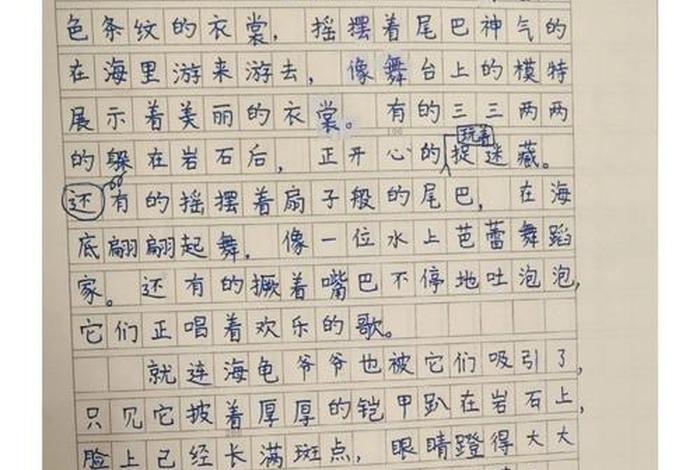 色条纹的衣裳，摇摆着尾巴神气的
在海里游来游去，像舞台上的模特
展示着美丽的衣裳。有的三三两两
的躲在岩石后，正开心的玩着捉迷藏。
还有的摇摆着扇子般的尾巴，在海
底翩翩起舞。像一位水上芭蕾舞蹈
家。还有的撅着嘴巴不停地吐泡泡，
它们正唱着欢乐的歌。
就连海龟爷爷也被它们吸引了，
只见它披着厚厚的铠甲趴在岩石上，
脸上已经长满斑点，眼睛蹬得大大